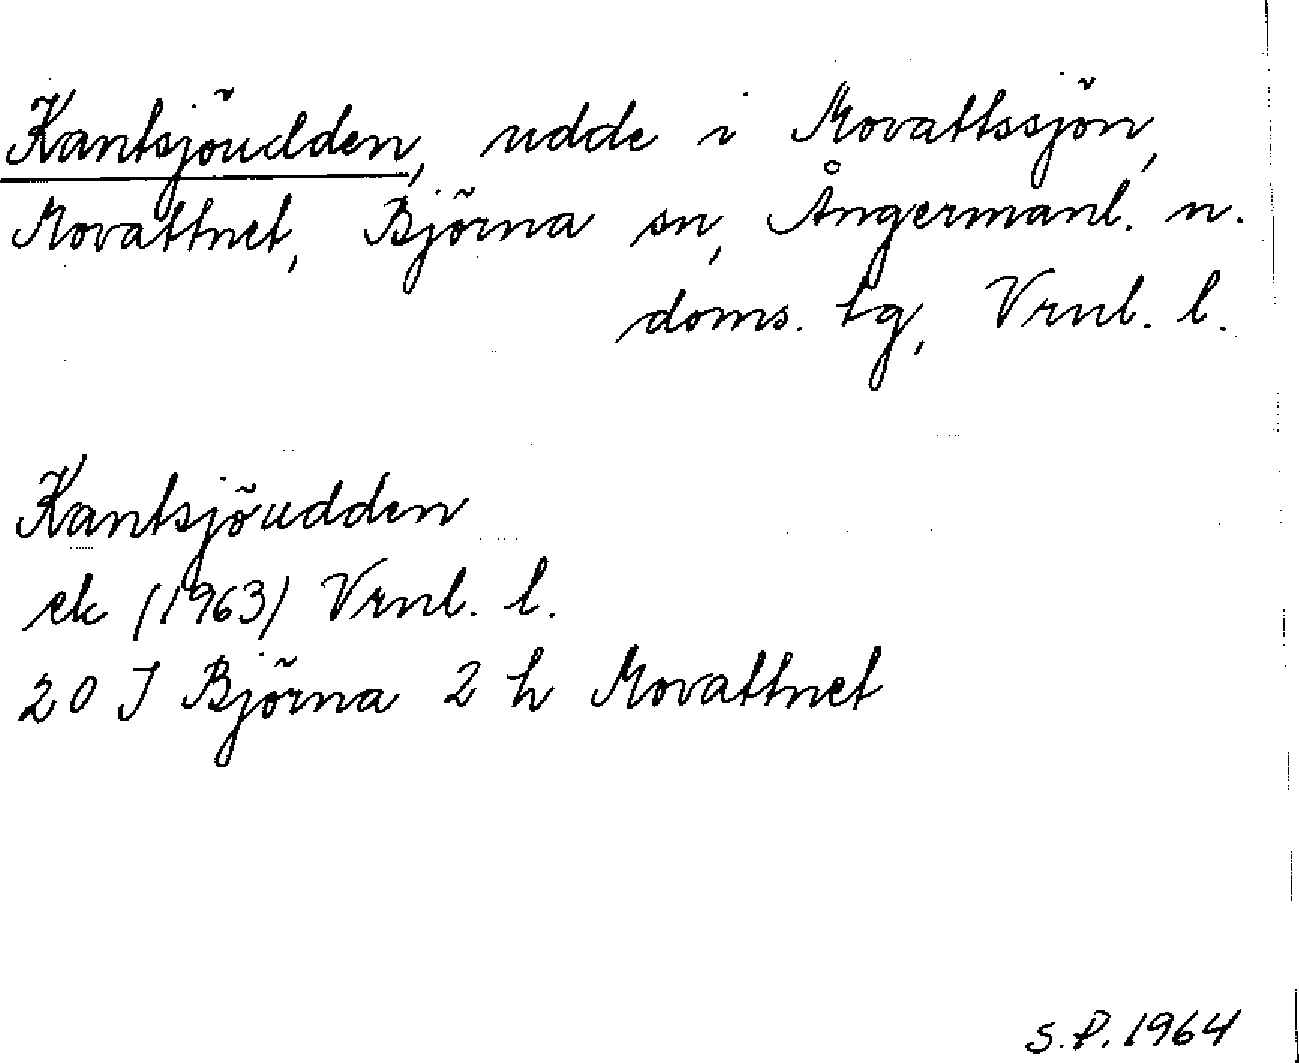 Kantsjöudden, udde i Movattssjön,
Movattnet, Björna sn, Ångermanl. n.
doms. tg, Vrnl. l.
Kantsjöudden
ek (1963) Vrnl. l.
20 J Björna 2 h Movattnet
S.P. 1964